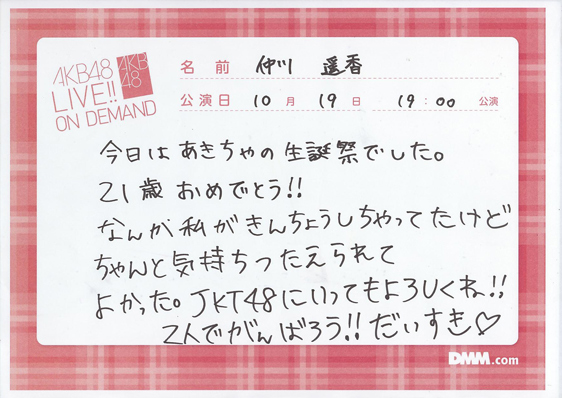 AKB48
LIVE!!
ON DEMAND
AKB
48
名前 仲川 遥香
公演日 10月 19日 19:00 公演
今日は あきちゃの 生誕祭でした。
21歳 おめでとう!!
なんか 私が きんちょうしちゃってたけど
ちゃんと 気持ち つたえられて
よかった。JKT48にいってもよろしくね!!
2人でがんばろう!! だいすき♡
DMM.com